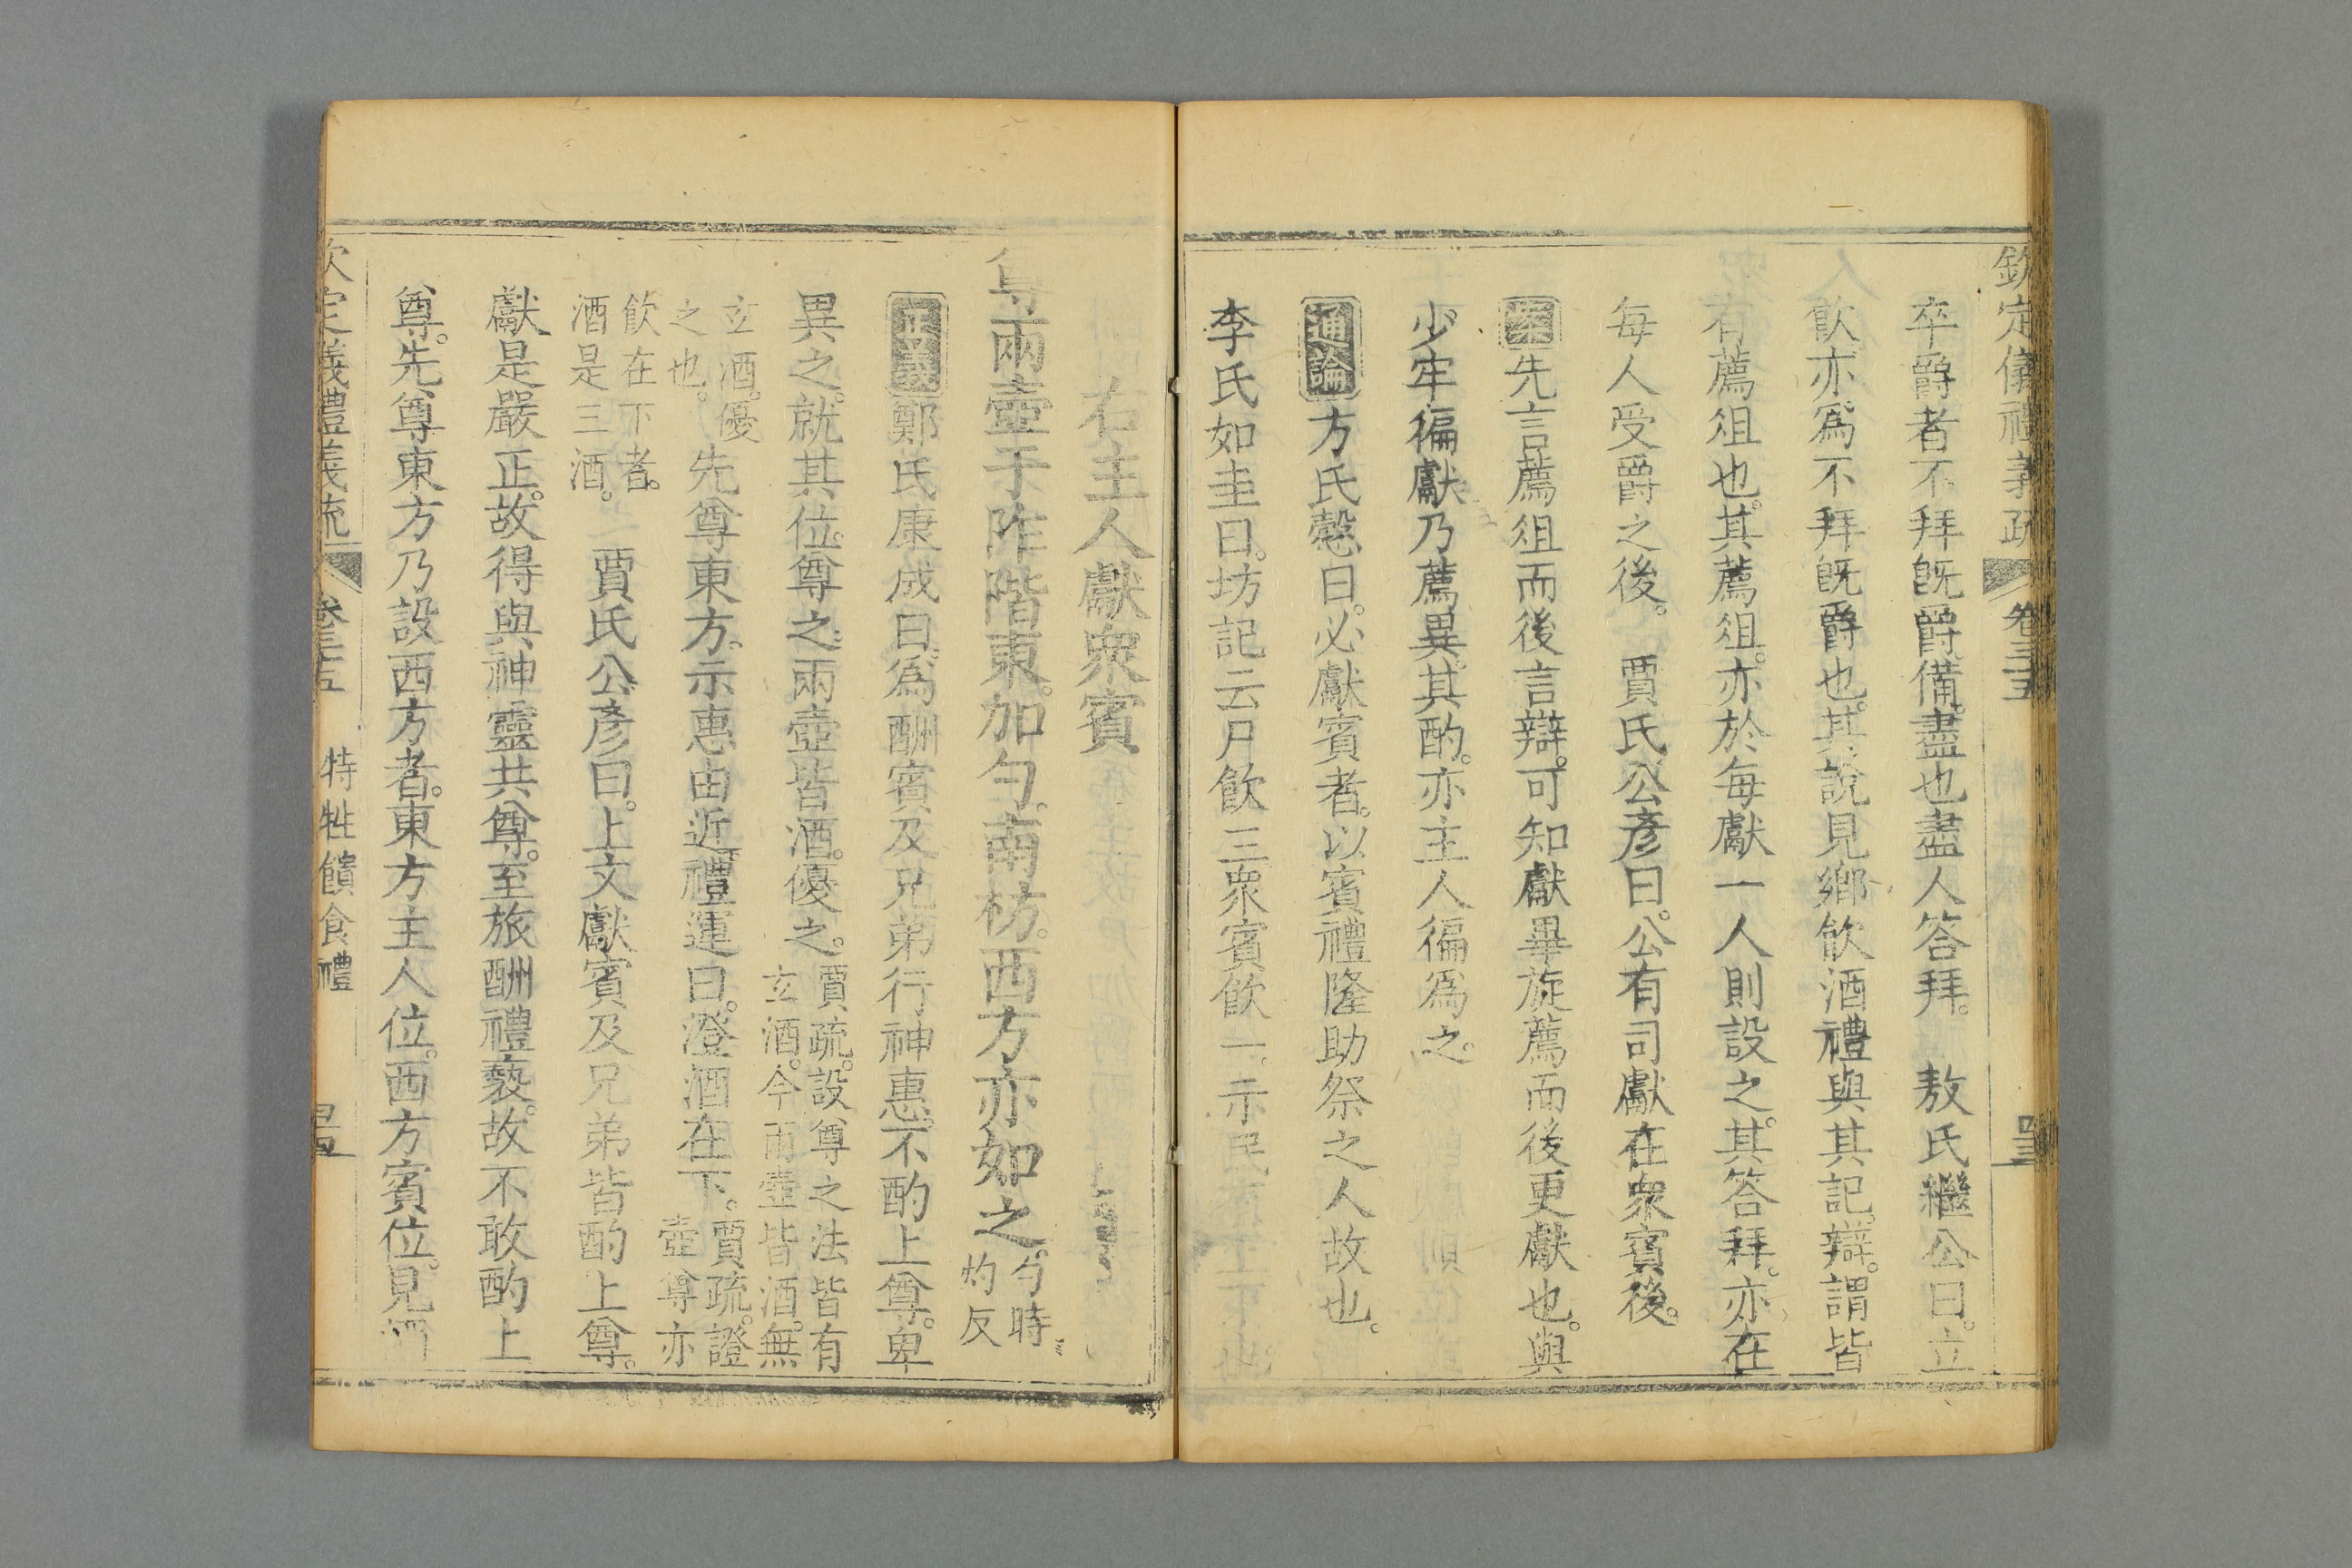 欽定儀禮義疏 卷三十五 四三
卒爵者不拜旣爵備盡也盡人答拜。 敖氏繼公曰。立
飮亦爲不拜旣爵也。其說見鄕飮酒禮與其記辯。謂皆
有薦俎也。其薦俎。亦於每獻一人則設之。其答拜。亦在
每人受爵之後。 賈氏公彥曰。公有司獻在衆賓後。
案先言薦俎而後言辯。可知獻畢旋薦而後更獻也。與
少牢徧獻乃薦異。其酌。亦主人徧爲之。
通論方氏慤曰。必獻賓者。以賓禮隆助祭之人故也。
李氏如圭曰。坊記云尸飮三衆賓飮一。示民
右主人獻衆賓
尊兩壺于阼階東。加勺。南枋。西方亦如之。勺時灼反
正義鄭氏康成曰。爲酬賓及兄弟行神惠。不酌上尊。卑
異之。就其位。尊之。兩壺皆酒。優之。賈疏。設尊之法皆有玄酒。今兩壺皆酒。無
玄酒。優之也。先尊東方。示惠由近。禮運曰。澄酒在下。賈疏。證壺尊亦
飮在下者。酒是三酒。 賈氏公彥曰。上文獻賓及兄弟皆酌上尊。
獻是嚴正。故得與神靈共尊。至旅酬禮褻。故不敢酌上
尊。先尊東方乃設西方者。東方主人位。西方賓位。見
欽定儀禮義疏 卷三十五 特牲饋食禮